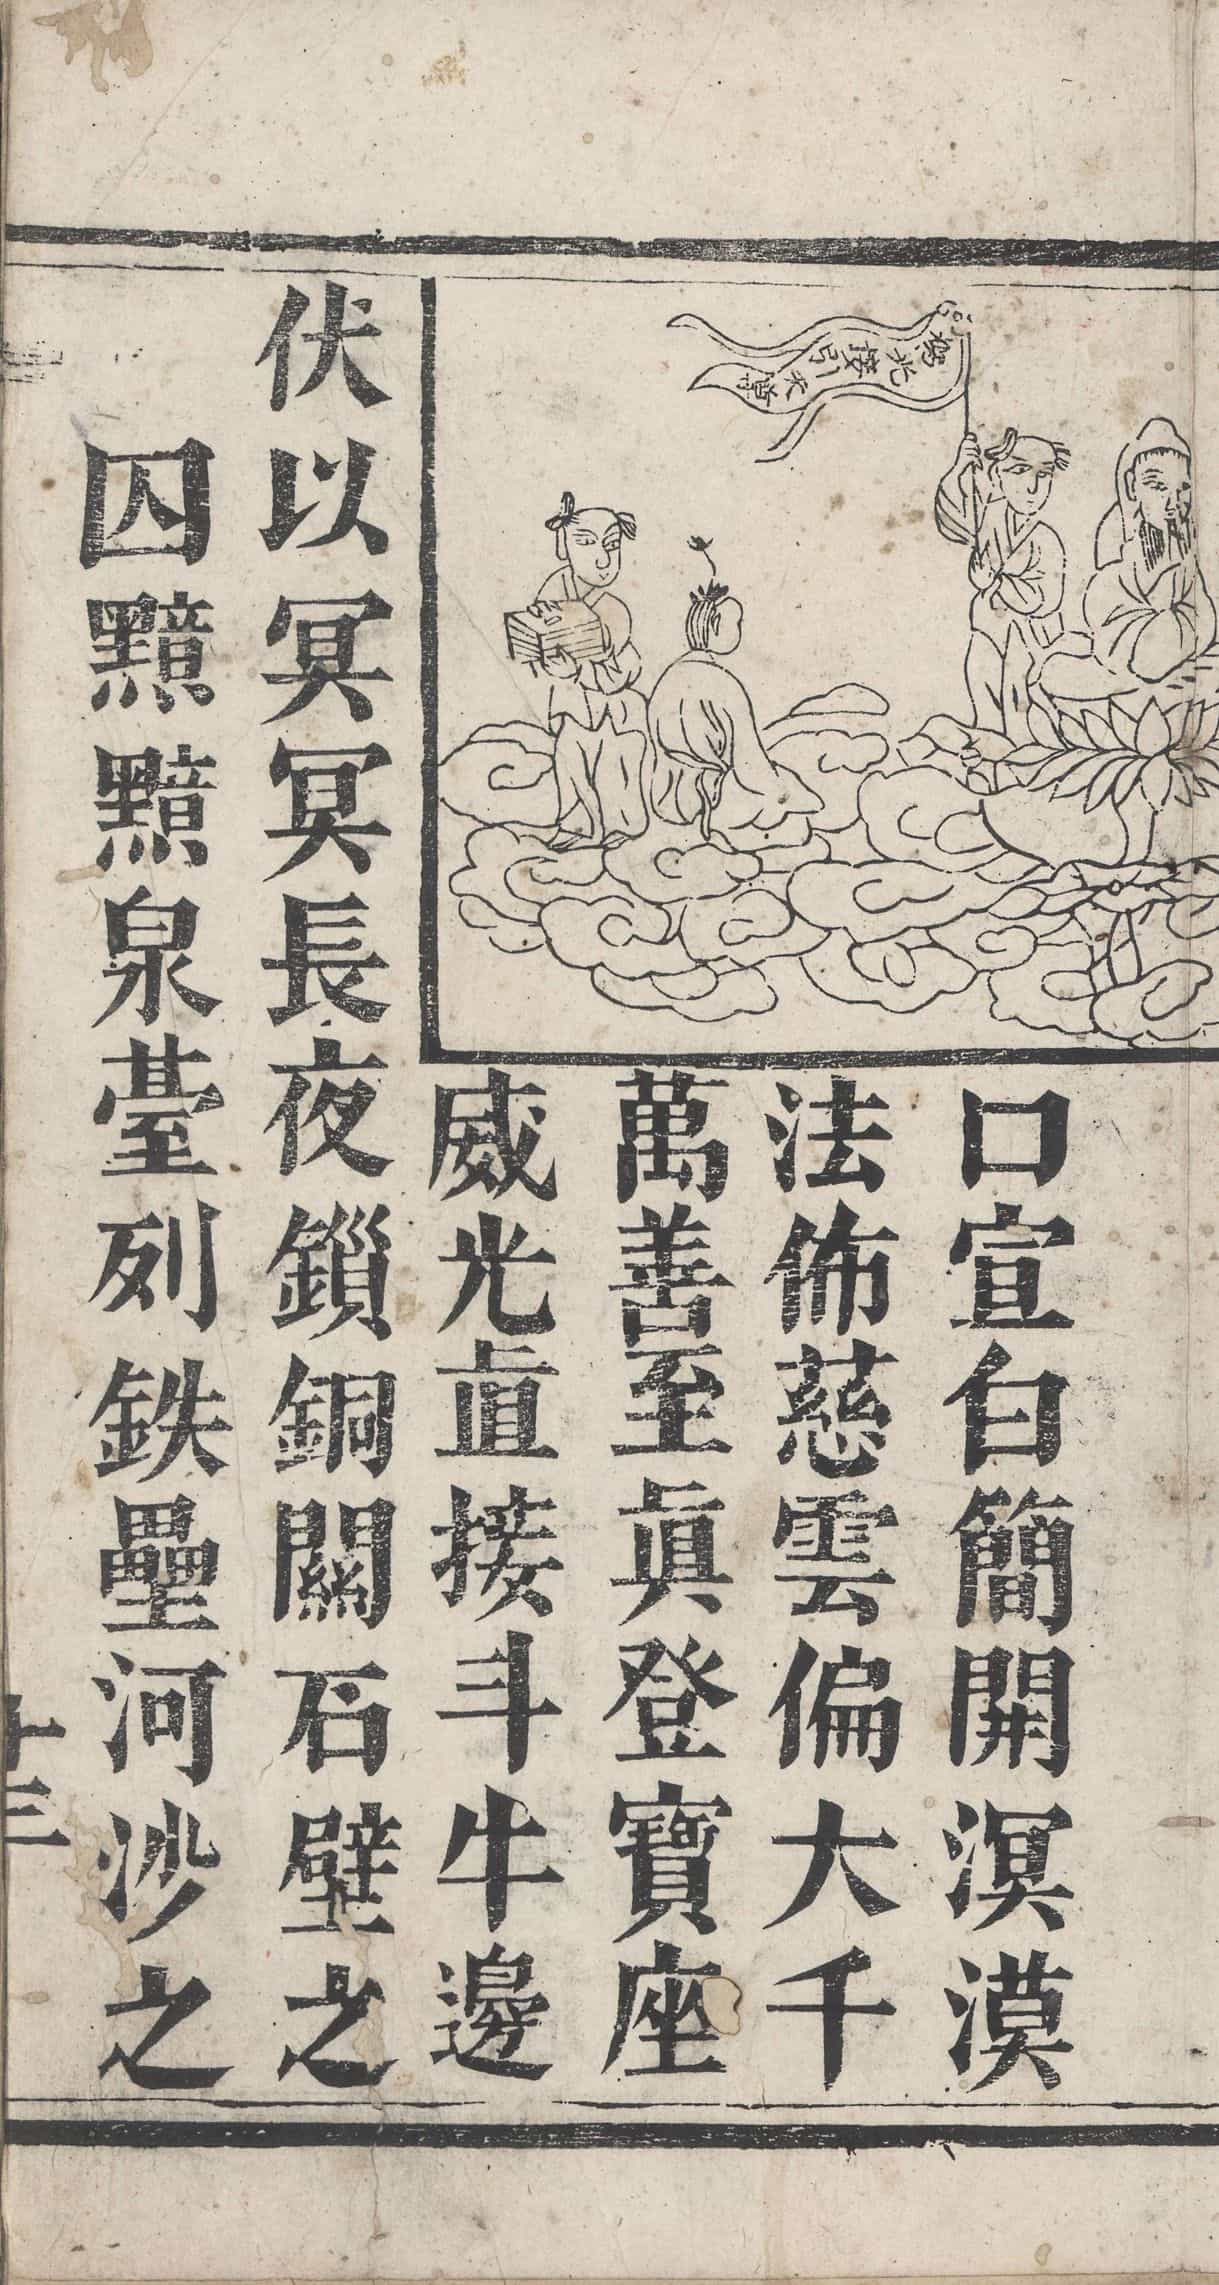 光接引天尊
口宣白簡開溟漠
法佈慈雲偏大千
萬善至眞登寶座
威光直接斗牛邊
伏以冥冥長夜鎖銅關石壁之
囚黯黯泉臺列鉄壘河沙之
十三